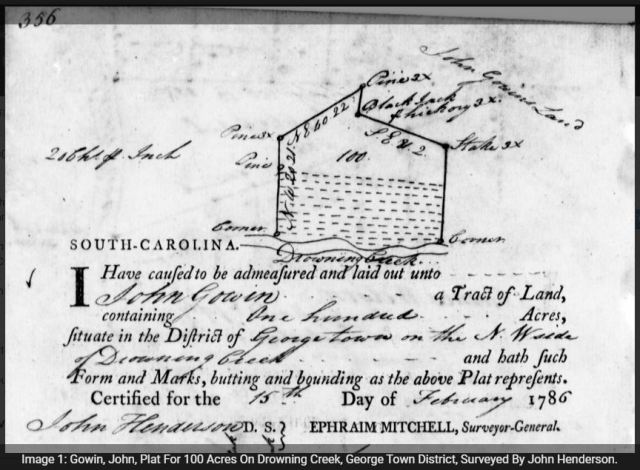 356
John Gowins Land
Pine 3x
Black Jack
& hickory 3x.
N E 60 22
Pine 3x
S E 71. 2
Stake 3x
20 Chs. p. Inch
Pine
100.
Corner
Corner
SOUTH-CAROLINA.
Drowning Creek
I Have cauſed to be admeaſured and laid out unto
John Gowin a Tract of Land,
containing One hundred Acres,
ſituate in the Diſtrict of Georgetown on the N. W side
of Drowning Creek and hath ſuch
Form and Marks, butting and bounding as the above Plat repreſents.
Certified for the 15th Day of February 1786
John Henderson D. S. } EPHRAIM MITCHELL, Surveyor-General.
Image 1: Gowin, John, Plat For 100 Acres On Drowning Creek, George Town District, Surveyed By John Henderson.